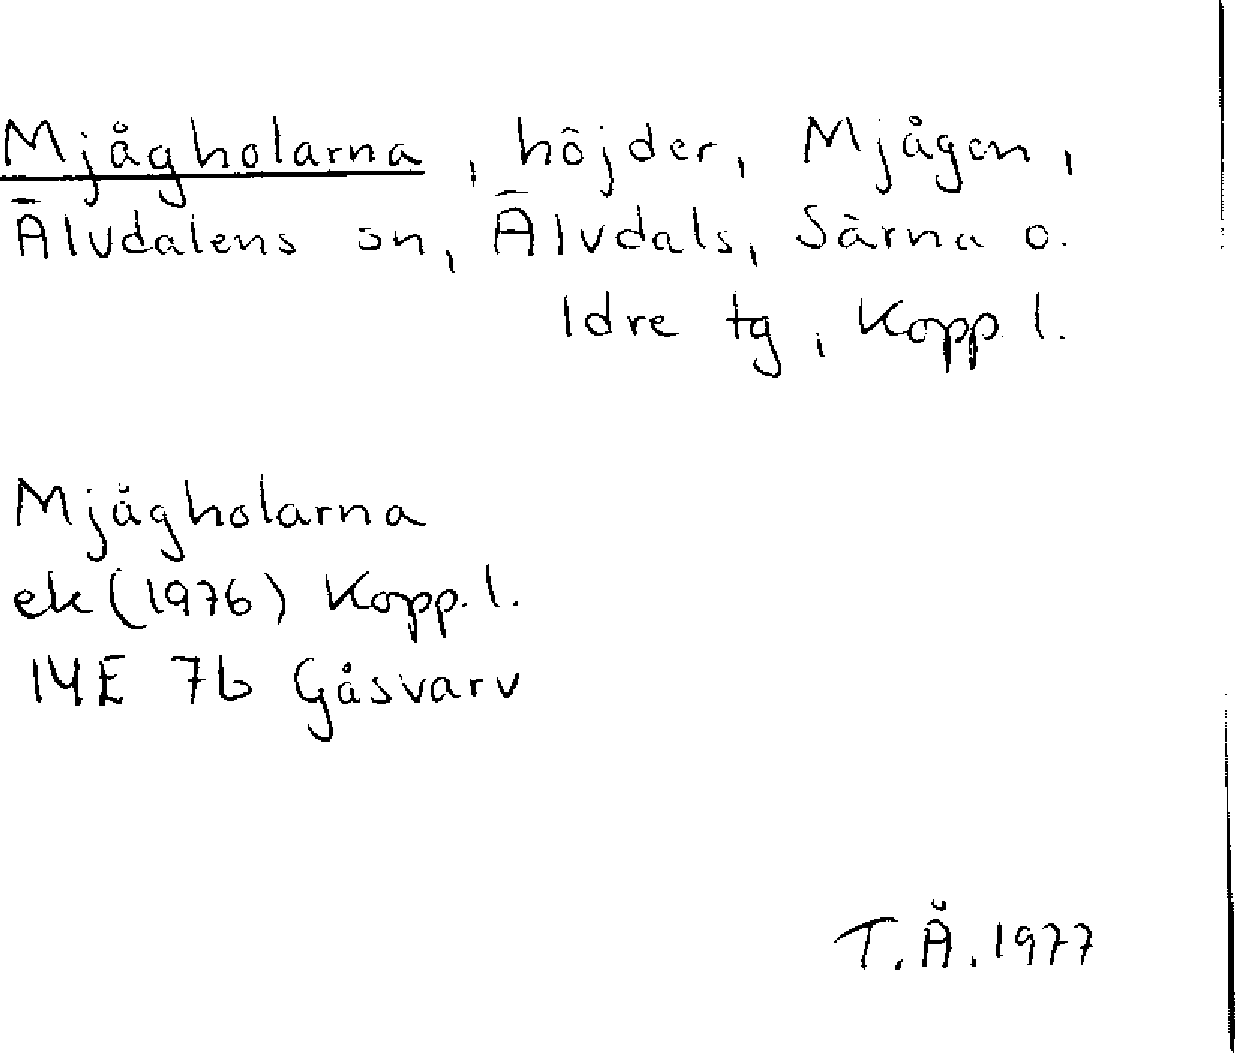 Mjågholarna, höjder, Mjågen,
Älvdalens sn, Älvdals, Särna o.
Idre tg, Kopp l.
Mjågholarna
ek (1976) Kopp. l.
14E 7b Gåsvarv
T.Å. 1977